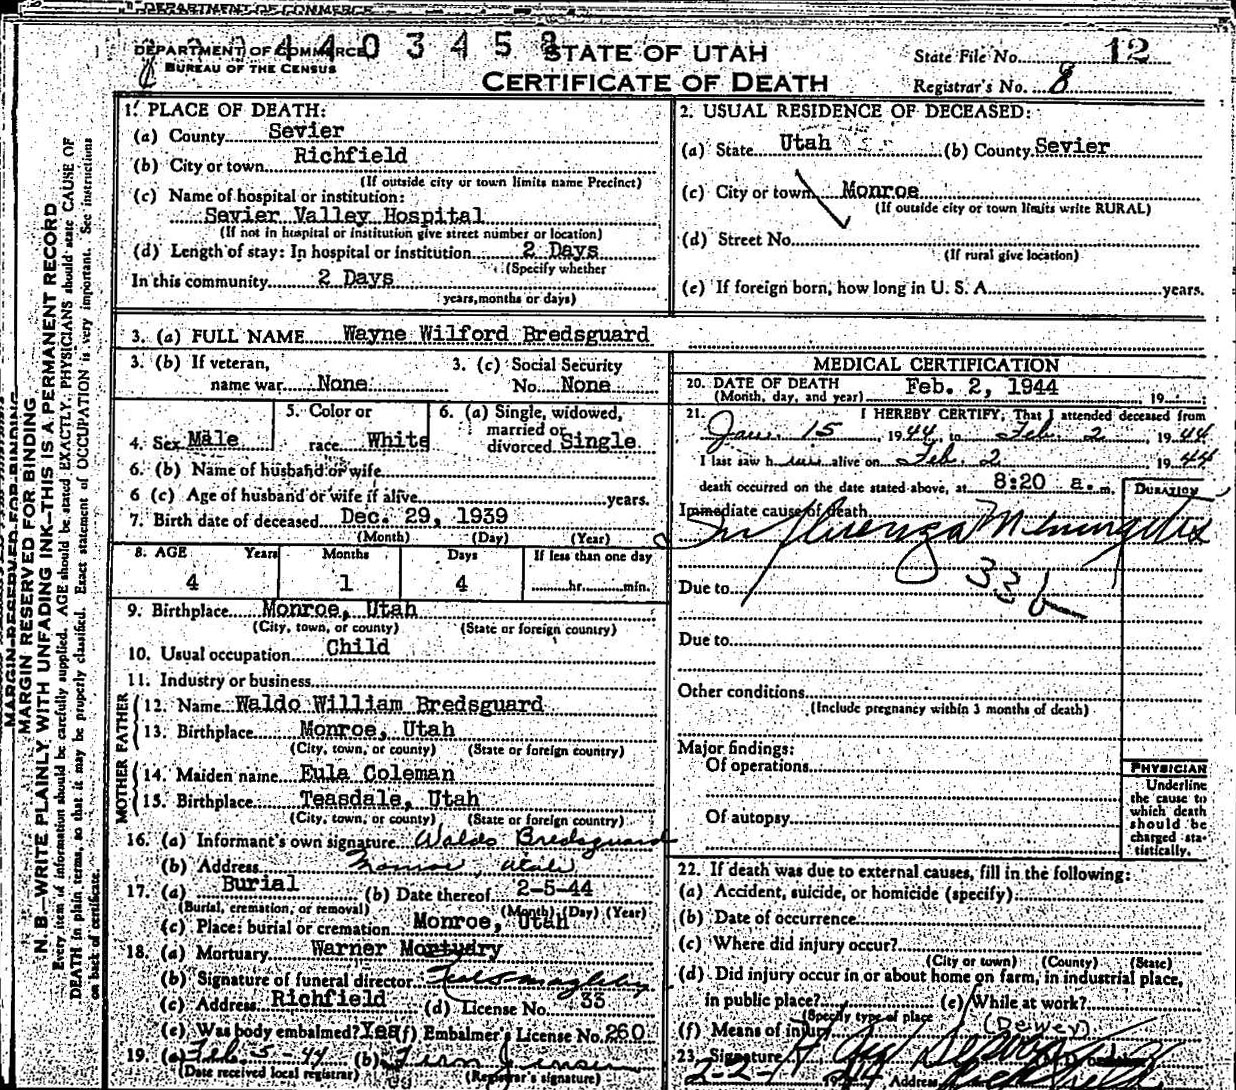 DEPARTMENT OF COMMERCE
DEPARTMENT OF COMMERCE
BUREAU OF THE CENSUS
4403458
STATE OF UTAH
CERTIFICATE OF DEATH
State File No. 12
Registrar's No. 8
MARGIN RESERVED FOR BINDING
MARGIN RESERVED FOR BINDING
N. B.—WRITE PLAINLY WITH UNFADING INK—THIS IS A PERMANENT RECORD
Every item of information should be carefully supplied. AGE should be stated EXACTLY. PHYSICIANS should state CAUSE OF
DEATH in plain terms, so that it may be properly classified. Exact statement of OCCUPATION is very important. See instructions
on back of certificate.
1. PLACE OF DEATH:
(a) County Sevier
(b) City or town Richfield
(If outside city or town limits name Precinct)
(c) Name of hospital or institution:
Sevier Valley Hospital
(If not in hospital or institution give street number or location)
(d) Length of stay: In hospital or institution 2 Days
(Specify whether
In this community 2 Days
years, months or days)
2. USUAL RESIDENCE OF DECEASED:
(a) State Utah (b) County Sevier
(c) City or town Monroe
(If outside city or town limits write RURAL)
(d) Street No.
(If rural give location)
(e) If foreign born, how long in U. S. A. years.
3. (a) FULL NAME Wayne Wilford Bredsguard
3. (b) If veteran, name war None
3. (c) Social Security No. None
4. Sex Male
5. Color or race White
6. (a) Single, widowed, married or divorced Single
6. (b) Name of husband or wife
6 (c) Age of husband or wife if alive years.
7. Birth date of deceased Dec. 29, 1939
(Month) (Day) (Year)
8. AGE Years Months Days If less than one day
4 1 4 hr. min.
9. Birthplace Monroe, Utah
(City, town, or county) (State or foreign country)
10. Usual occupation Child
11. Industry or business
FATHER
12. Name Waldo William Bredsguard
13. Birthplace Monroe, Utah
(City, town, or county) (State or foreign country)
MOTHER
14. Maiden name Eula Coleman
15. Birthplace Teasdale, Utah
(City, town, or county) (State or foreign country)
16. (a) Informant's own signature Waldo Bredsguard
(b) Address Monroe, Utah
17. (a) Burial (b) Date thereof 2-5-44
(Burial, cremation, or removal) (Month) (Day) (Year)
(c) Place: burial or cremation Monroe, Utah
18. (a) Mortuary Warner Mortuary
(b) Signature of funeral director
(c) Address Richfield (d) License No. 33
(e) Was body embalmed? Yes (f) Embalmer's License No. 260
19. (a) Feb. 5-44 (b) Fern Jensen
(Date received local registrar) (Registrar's signature)
MEDICAL CERTIFICATION
20. DATE OF DEATH Feb. 2, 1944
(Month, day, and year) 19
21. I HEREBY CERTIFY, That I attended deceased from
Jan. 15, 1944, to Feb. 2 1944
I last saw him alive on Feb. 2 1944
death occurred on the date stated above, at 8:20 a. m.
DURATION
Immediate cause of death
Influenza Meningitis
33b
Due to
Due to
Other conditions
(Include pregnancy within 3 months of death)
Major findings:
Of operations
Of autopsy
PHYSICIAN
Underline
the cause to
which death
should be
charged sta-
tistically.
22. If death was due to external causes, fill in the following:
(a) Accident, suicide, or homicide (specify)
(b) Date of occurrence
(c) Where did injury occur?
(City or town) (County) (State)
(d) Did injury occur in or about home on farm, in industrial place,
in public place? (e) While at work?
(Specify type of place
(f) Means of injury (Dewey)
23. Signature
2-2- 1944 Address